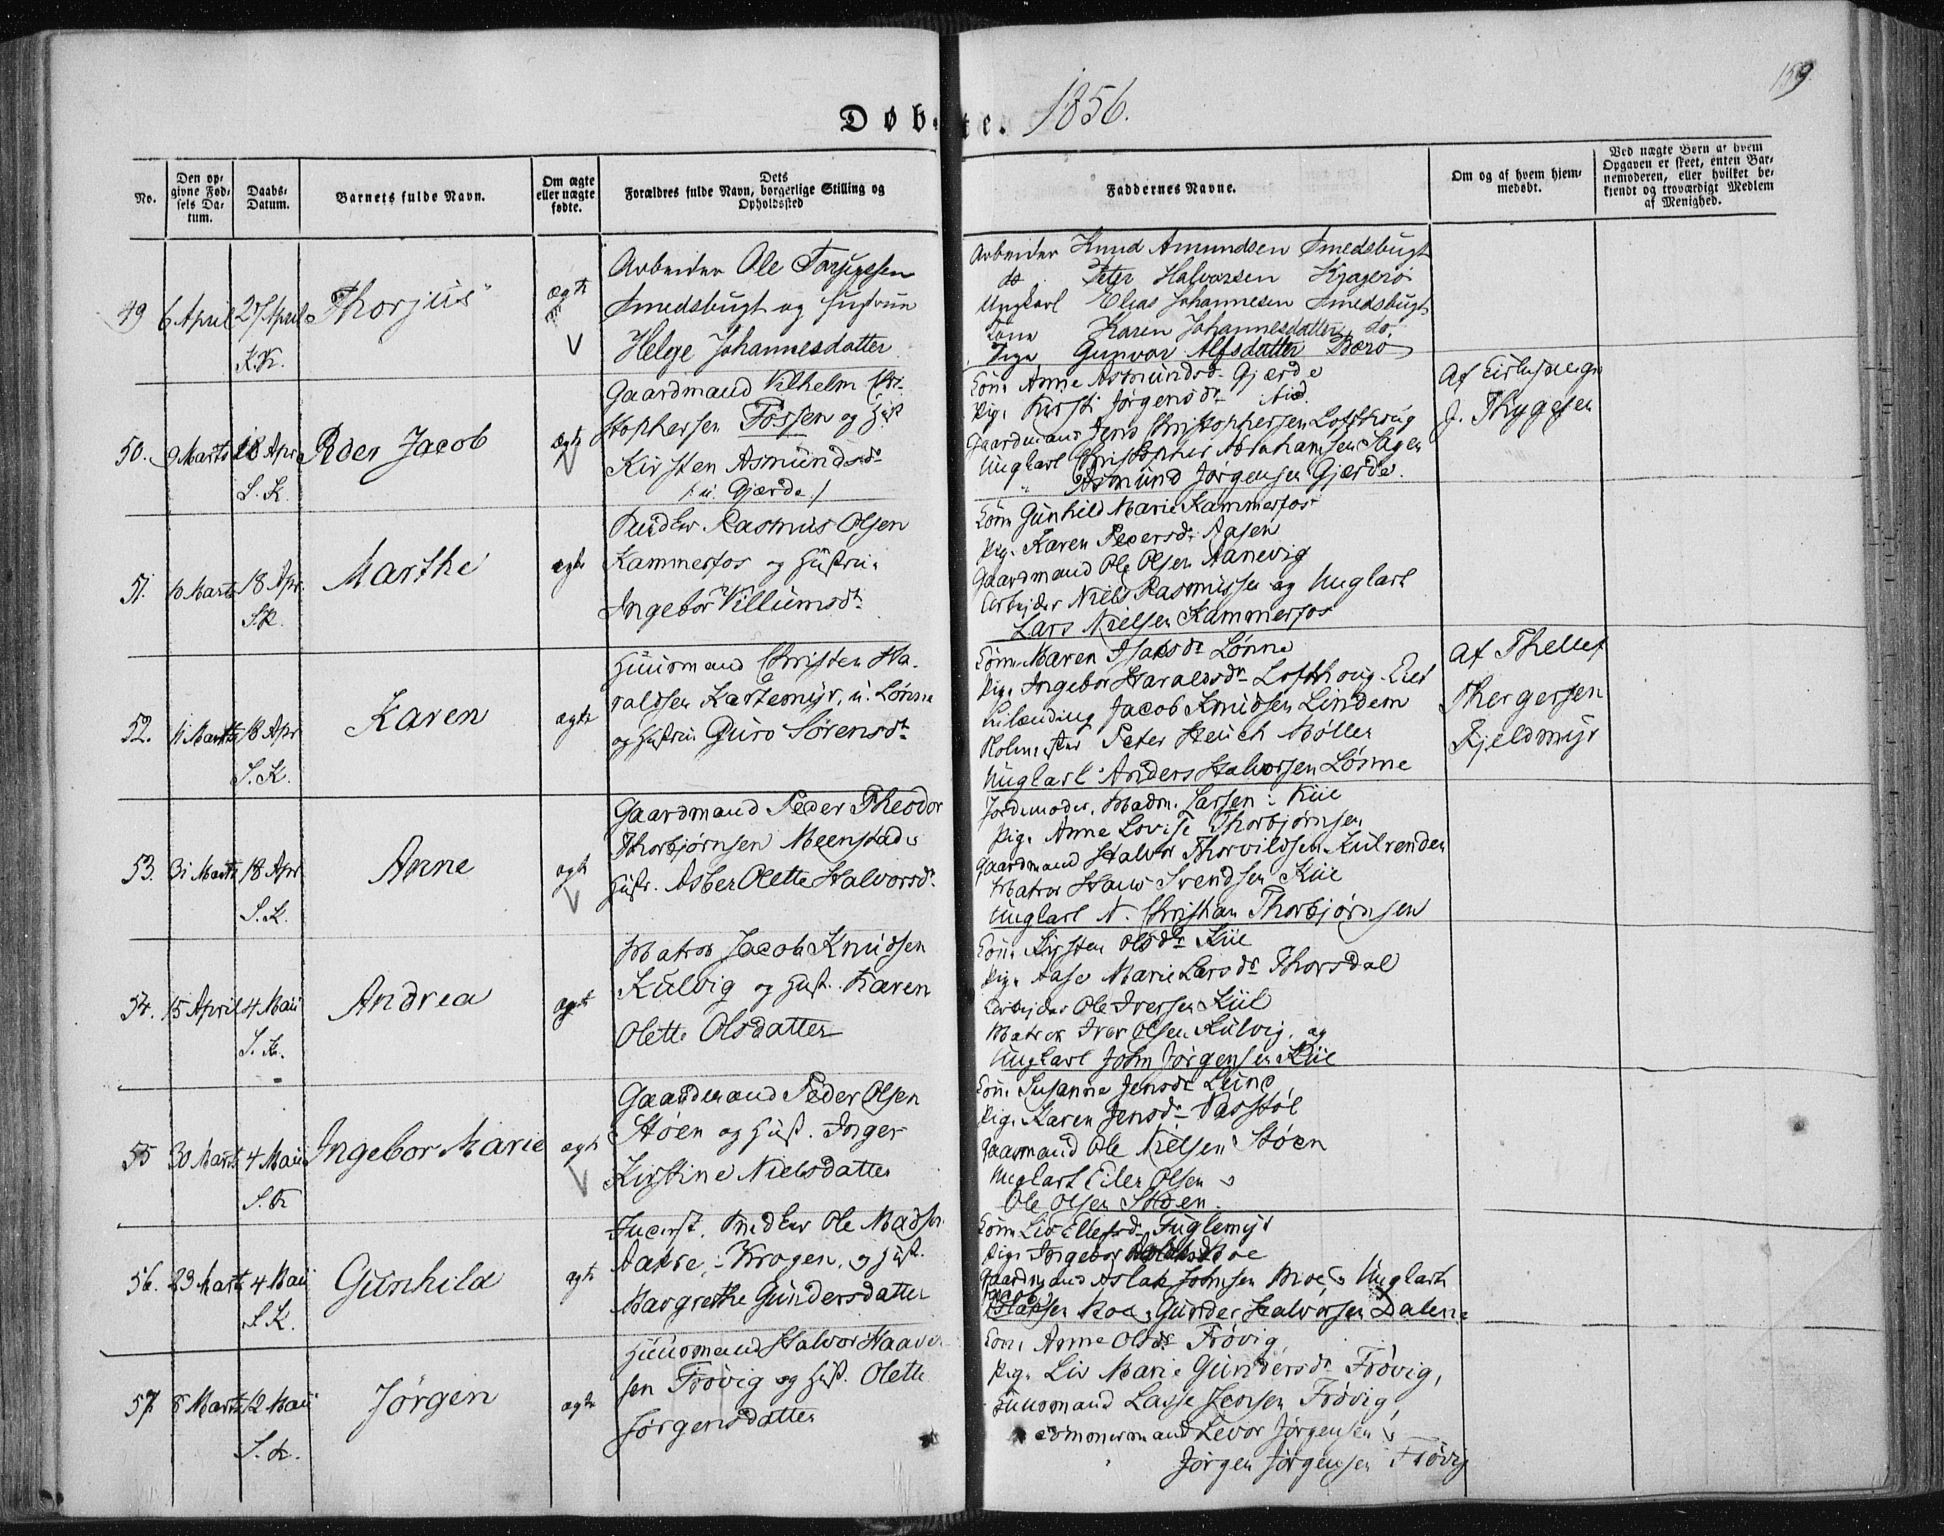 159
Døbte. 1856.
No.
Den opgivne Fødsels Datum.
Daabs-Datum.
Barnets fulde Navn.
Om ægte eller uægte fødte.
Dets Forældres fulde Navn, borgerlige Stilling og Opholdssted
Faddernes Navne.
Om og af hvem hjemmedøbt.
Ved uægte Børn af hvem Opgaven er skeet, enten Barnemoderen, eller hvilket bekjendt og troværdigt Medlem af Menighed.
49 6 April 27 April Thorjus ægte
K.K.
Arbeider Ole Torjussen
Smedsbugt og Hustrue
Helge Johannesdatter
Arbeider Knud Amundsen Smedsbugt
do. Peter Halvorsen Kragerö
Ungkarl Elias Johannesen Smedsbugt
Kone Karen Johannesdatter do.
Pige Gunvor Alfsdatter Barö
50. 9 Marts 18 Apr. Peder Jacob ægte
S.K.
Gaardmand Vilhelm Chri-
stophersen Fossen og Hust
Kirsten Asmundsdr
/: u. Gjærde :/
Kone Anne Asmundsdr Gjærde
Pige Kirsti Jørgensdr ibid.
Gaardmand Jens Christophersen Lofthoug
Ungkarl Christopher Abrahamsen Sagen
" Asmund Jørgensen Gjærde.
J. Thygesen
51. 10 Marts 18 Apr. Marthe ægte
S.K.
Rasmus Olsen
Kammerfos og Hustrue
Ingebor Villumsdr
Kone Gunhild Marie Kammerfos
Pige Karen Pedersdr Aasen
Gaardmand Ole Olsen Aanevig
Arbeider Niels Rasmussen og Ungkarl
Lars Nielsen Kammerfos
52. 11 Marts 18 Apr Karen ægte
S.K.
Huusmand Christen Ha-
raldsen Kartemyr, u. Lønne
og Hustrue Guro Sørensdr
Kone Maren Isaksdr Lønne
Pige Ingebor Haraldsdr Lofthoug Eiet
Jacob Knudsen Lindem
Peter Henrich Møller
Ungkarl Anders Halvorsen Lønne
Af Thellef
Thergersen
Kjeldmyr
53. 31 Marts 18 Apr Anne ægte
S.K.
Gaardmand Peder Theodor
Thorbjørnsen Meenstad &
Hustr. Asber Olette Halvorsdr
Jordemoder, Madm. Larsen i Kiil
Pige Anne Lovise Thorbjørnsen
Gaardmand Halvor Thorvildsen Kulrenden
Matros Hans Svendsen Kiil
Ungkarl N. Christian Thorbjørnsen
54. 15 April 4 Maii Andrea ægte
S.K.
Matros Jacob Knudsen
Kulvig og Hust. Karen
Olette Olsdatter
Kone Kirsten Olsdr Kiil
Pige Aase Marie Larsdr Thorsdal
Arbeider Ole Iversen Kiil
Matros Iver Olsen Kulvig, og
Ungkarl John Jørgensen Kiil
55 30 Marts 4 Maii Ingebor Marie ægte
S.K
Gaardmand Peder Olsen
Støen og Hust. Inger
Kirstine Nielsdatter
Kone Susanne Jensdr Leine,
Pige Karen Jensdr Vasstøl
Gaardmand Ole Nielsen Støen
Ungkarl Eiler Olsen &
Ole Olsen Støen.
56. 23 Marts 4 Maii Gunhild ægte
S.K.
Ole Madsen
Aakre, i Krogen, og Hust.
Margrethe Gundersdatter
Kone Liv Ellefsdr Fuglemyr
Pige Ingebor Moe
Gaardmand Aslak Johnsen Moe & Ungkarl
Aslaksen Moe, Gunder Halvorsen Dalene
57. 8 Marts 12 Maii Jørgen ægte
S.K.
Huusmand Halvor Haavor-
sen Frøvig og Hust. Olette
Jørgensdatter
Kone Anne Olsdr Frøvig,
Pige Liv Marie Gundersdr Frøvig,
Huusmand Lasse Jensen Frøvig,
Tømmermand Levor Jørgensen &
Jørgen Jørgensen Frøvig